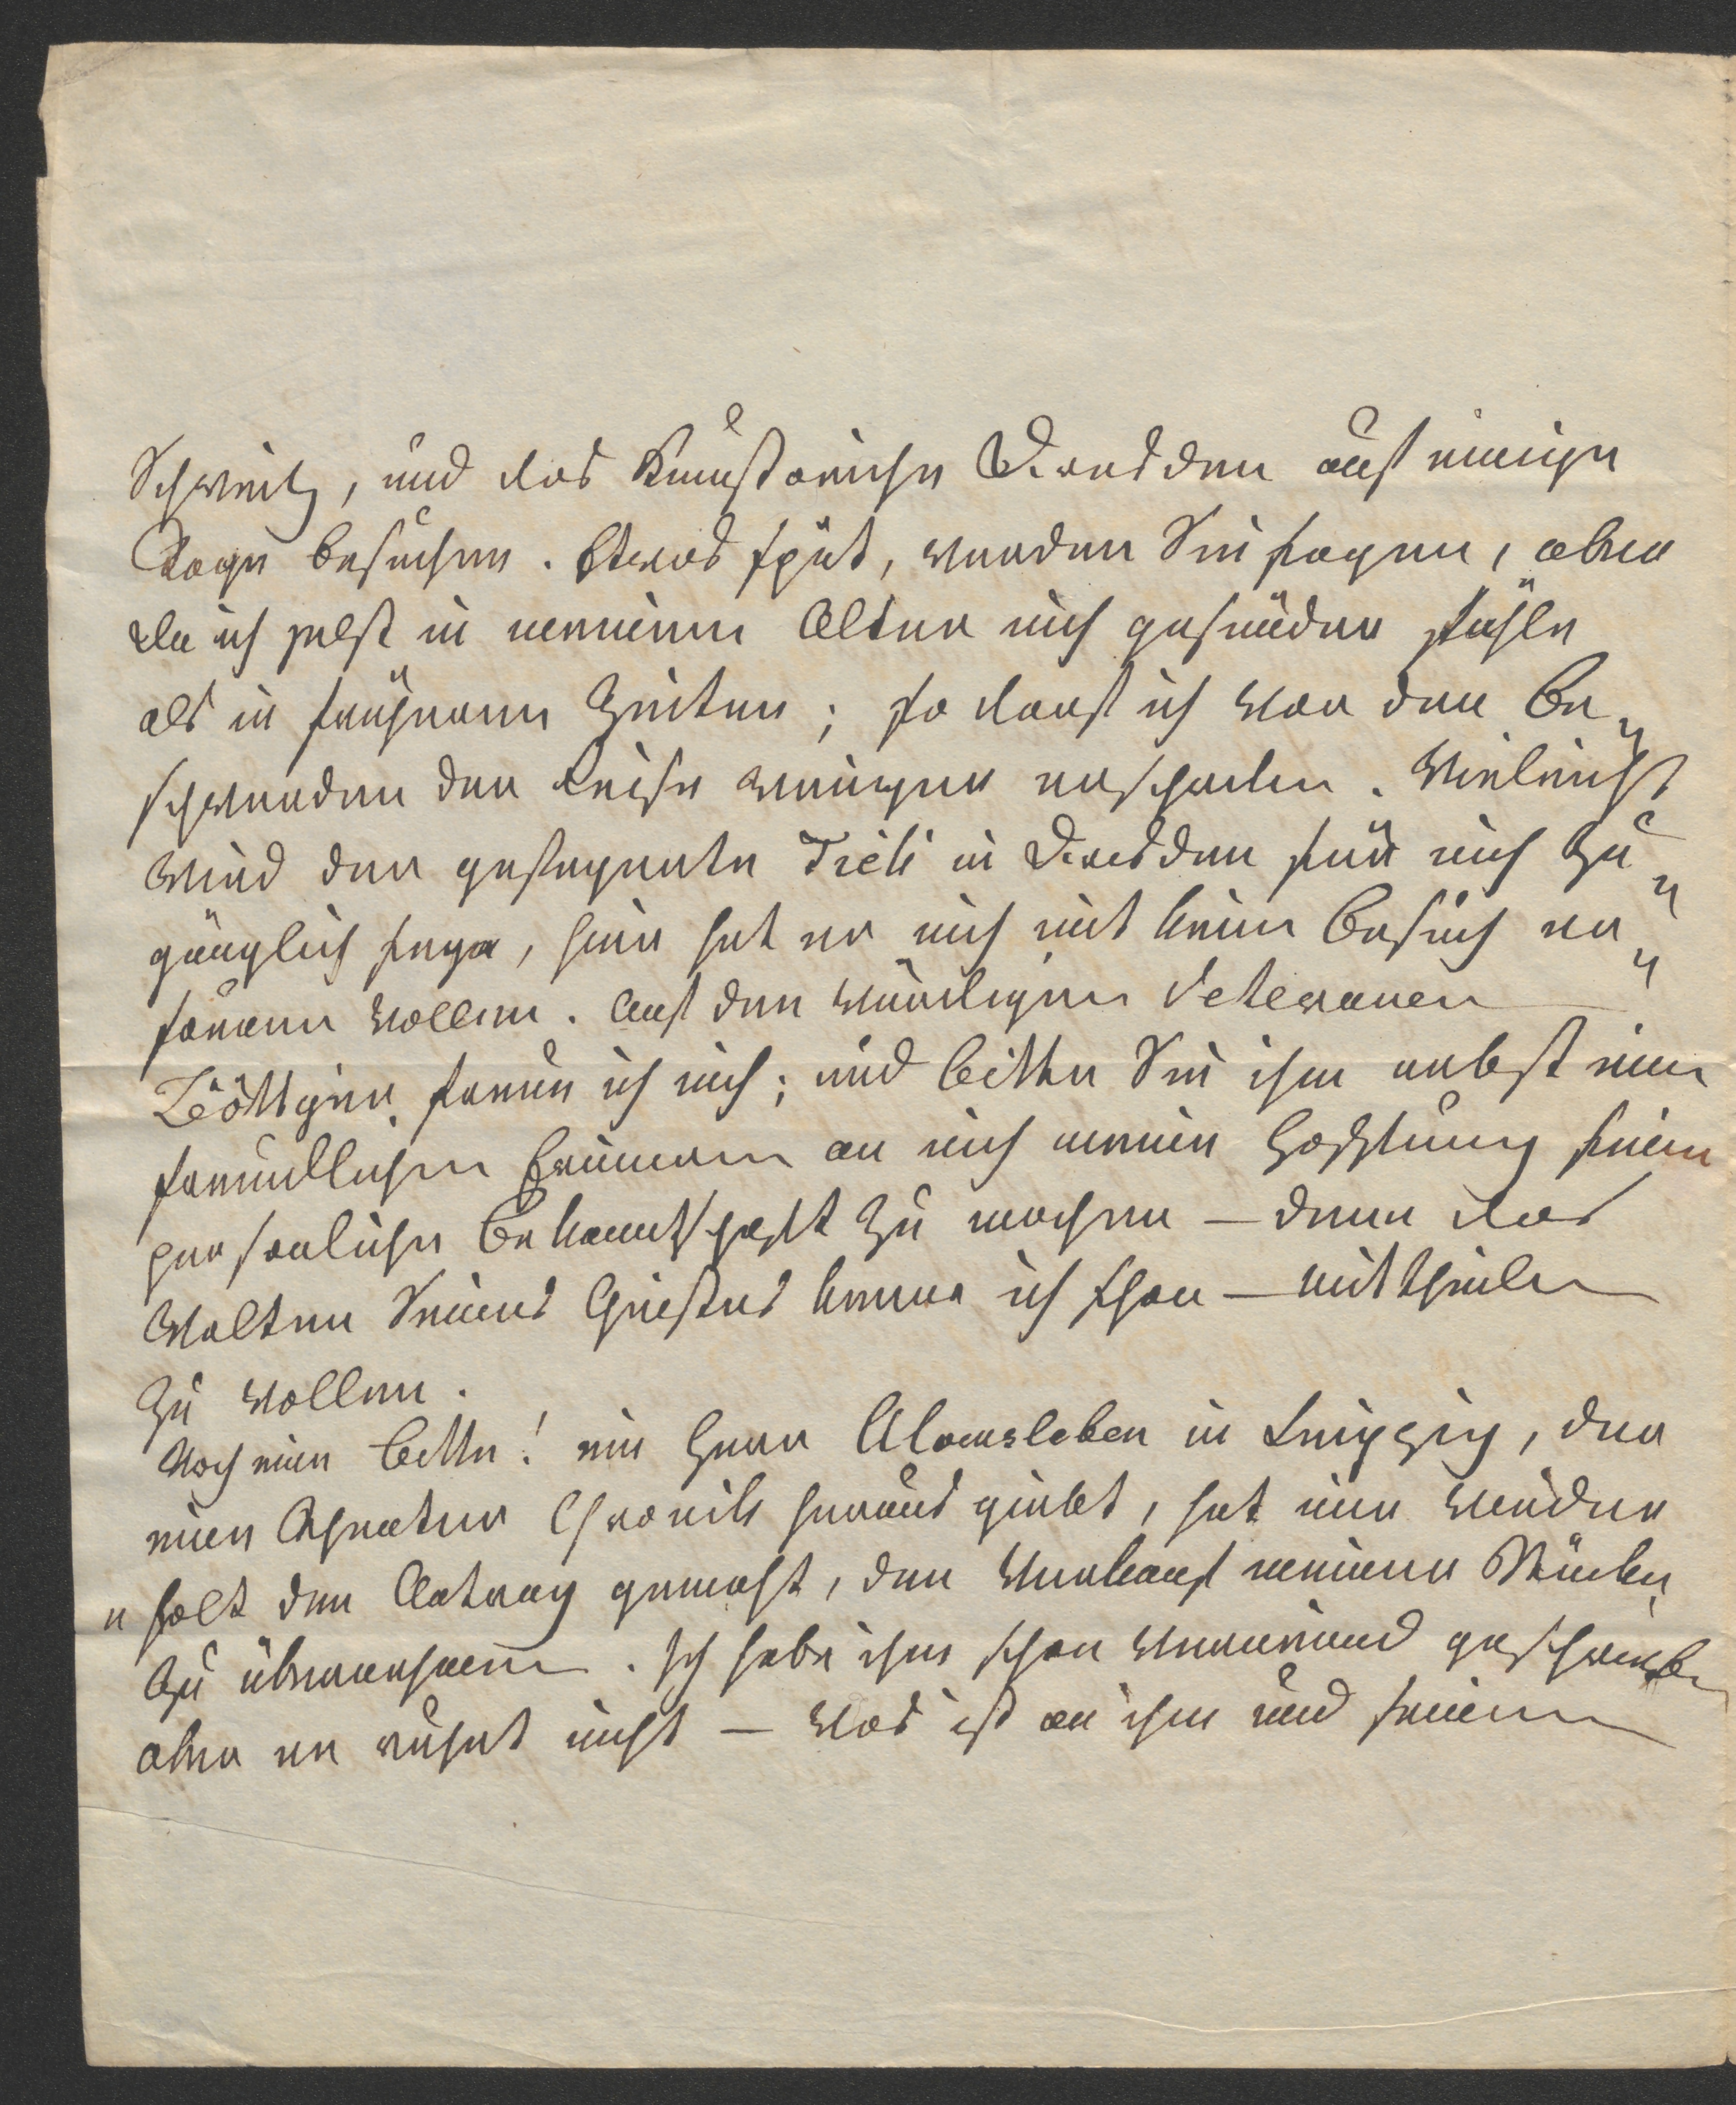 Schweitz, und das Kunstreiche Dresden auf einige
Tage besuchen. Etwas spät, werden Sie sagen, aber
da ich selbst in meinem Alter mich gesünder fühle
als in früheren Zeiten; so darf ich vor den Be„
schwerden der Reise weniger erschrecken. Vieleicht
wird der gefeyerte Tieck in Dresden für mich zu„
gänglich seyn, hier hat er mich mit keinem Besuch er„
freuen wollen. Auf den würdigen Veteranen
Böttiger freue ich mich; und bitte Sie ihm nebst einem
freundlichen Erinnern an mich meine Hoffnung seine
persönliche Bekantschaft zu machen – denn das
Walten Seines Geistes kenne ich schon – mittheilen
zu wollen.
Noch eine Bitte! ein Herr Alvensleben in Leipzig, der
eine Theater Chronik heraus giebt, hat mir wieder
„holt den Antrag gemacht, den Verkauf meiner Stücke,
zu übernehmen. Ich habe ihm schon verneinend geschrieben
aber er ruhet nicht – was ist an ihm und seinem